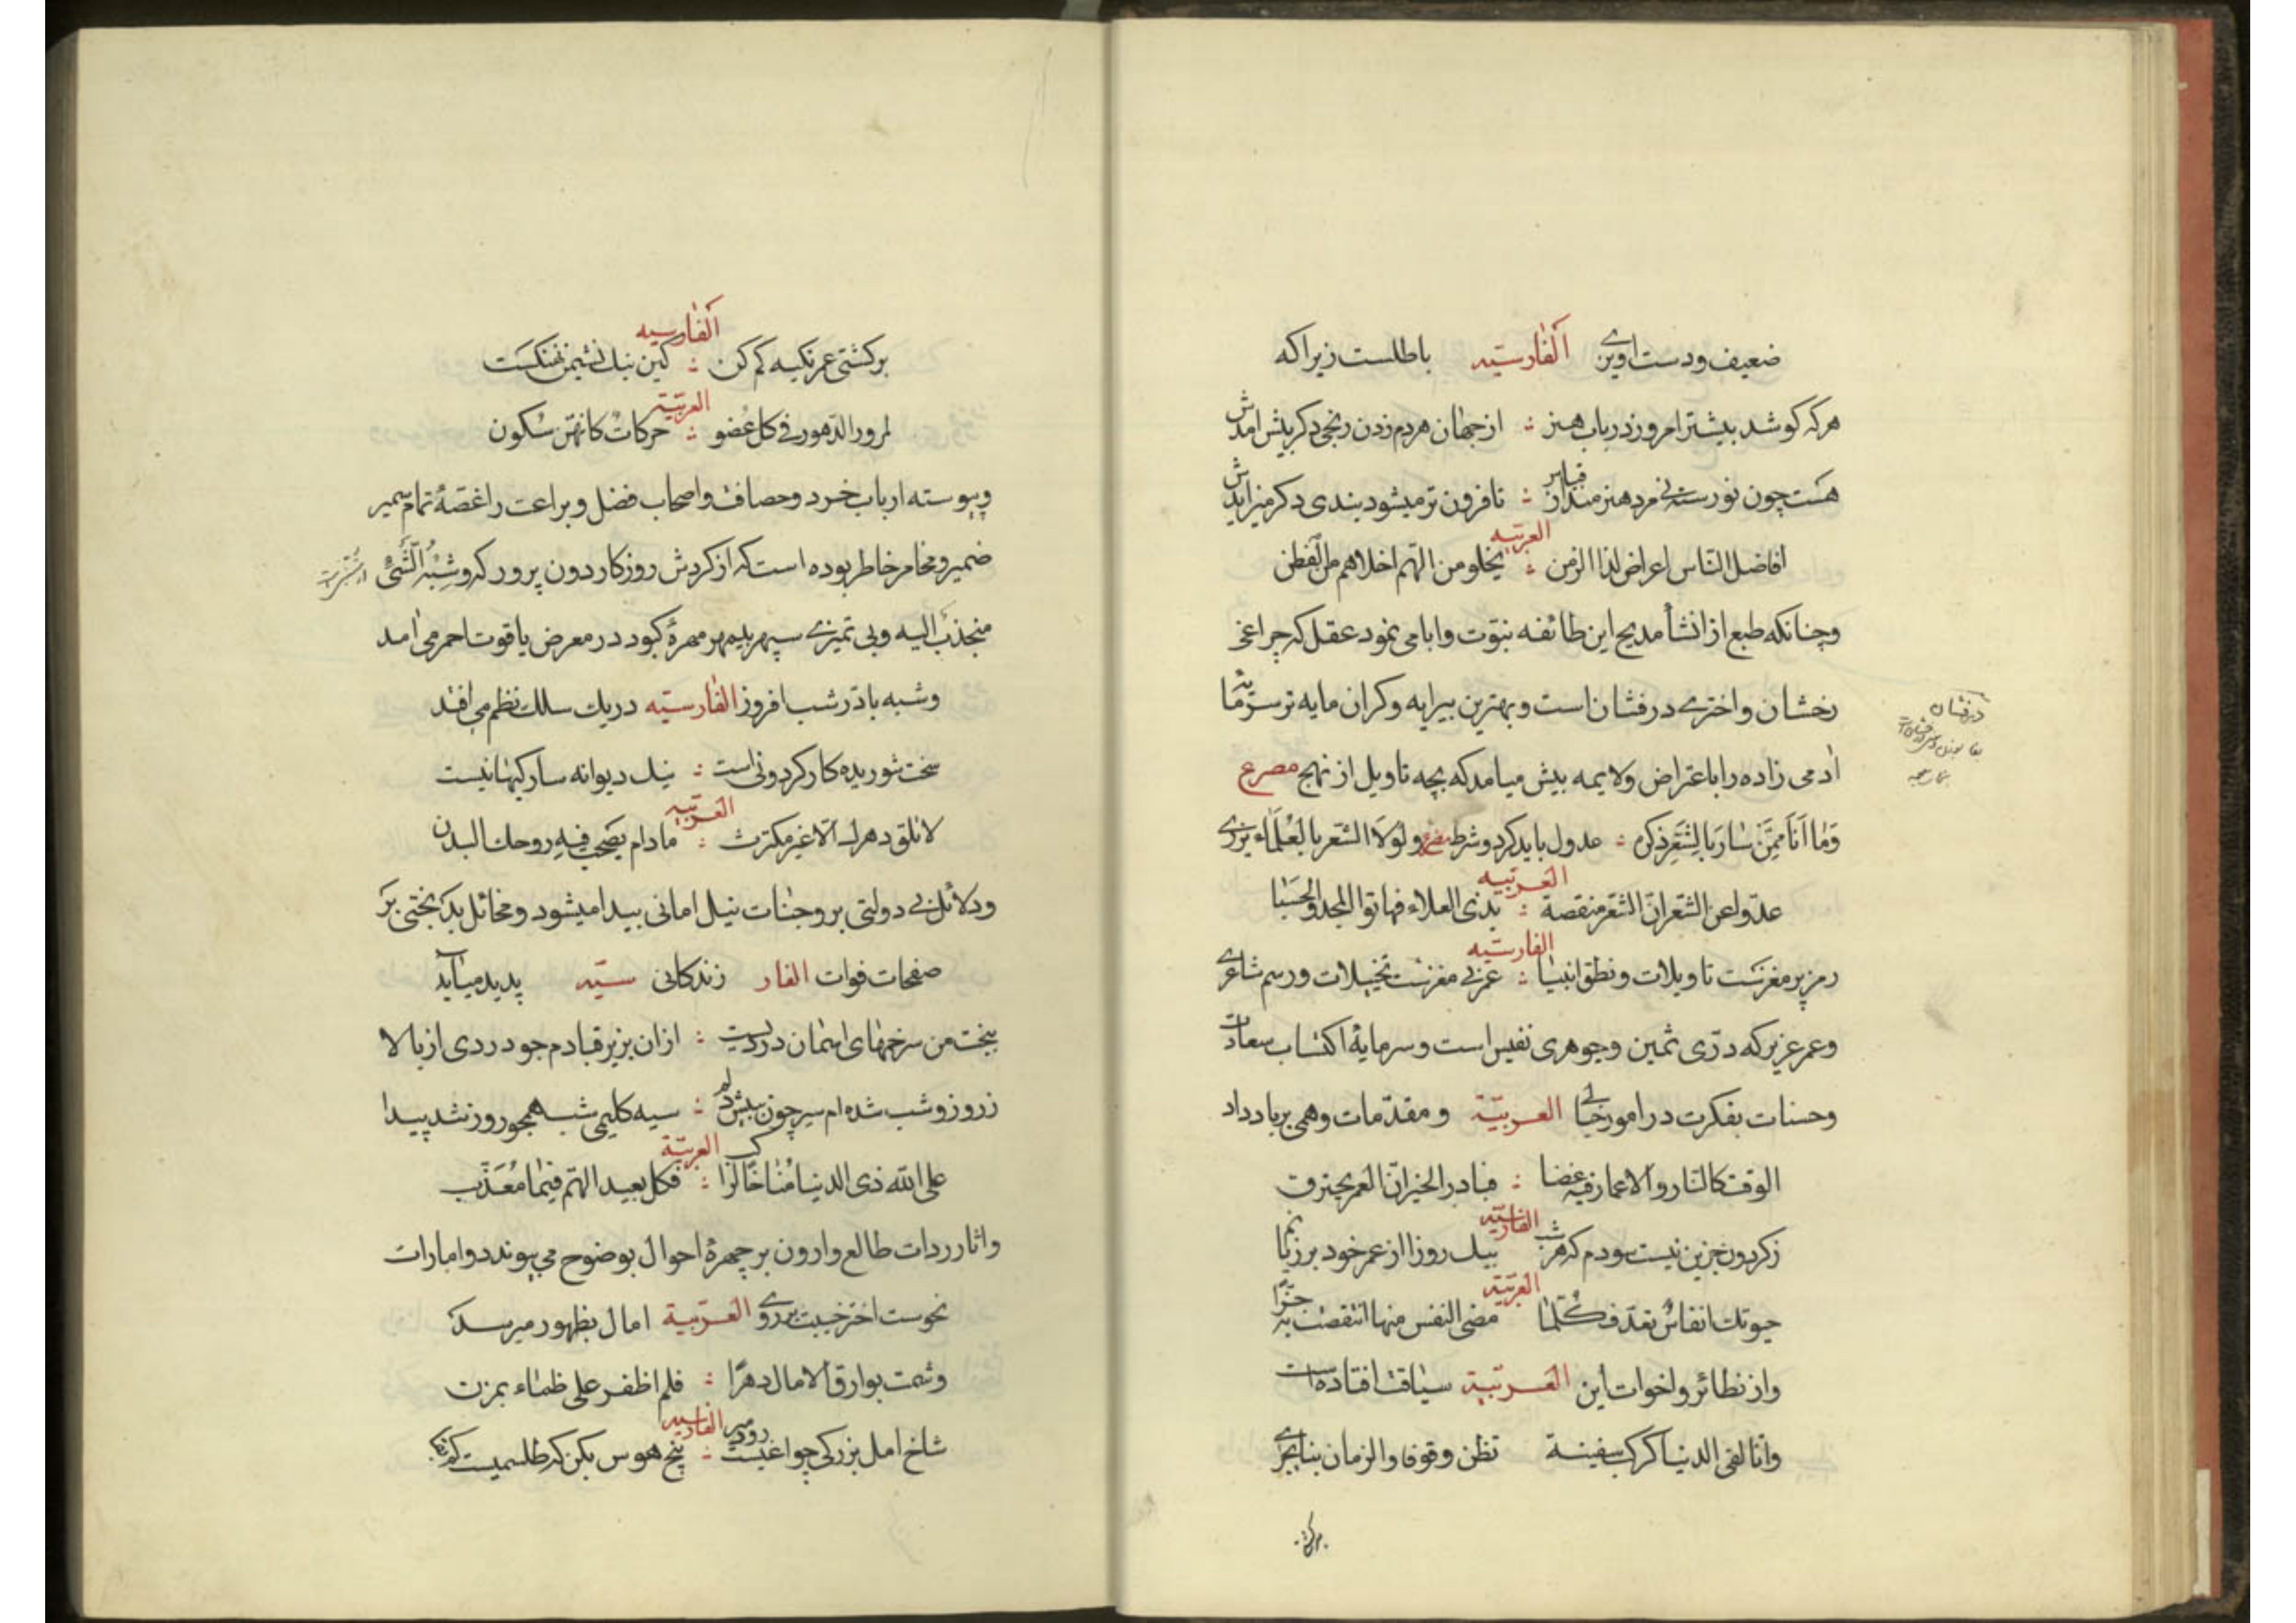 ضعیف ودست اویزی الفارسیّه باطلست زیراکه
هرکه کوشد بیشتر امروز در باب هنر : از جهان هردم زدن رنجی دکر پیش امدش
هست چون نو رسته نی مرد هنرمند از قیاس : تا فزون تر میشود بندی دکر میزایدش
العربیه
افاضل الناس اعراض لذا الزمن : یخلو من الهم اخلاهم من الفطن
وچنانکه طبع از انشأ مدیح این طائفه نبوّت وابا می نمود عقل که چراغی
رخشان واختری درفشان است وبهترین پیرایه وکران مایه تر
ادمی زاده را با اعتراض ولایمه پیش میامد که بچه تاویل از نهج مصرع
وَمٰا اَنَا مِمَّنْ سٰارَ بِالشِّعْرِ ذِکره : عدول باید کرد وشرط مصرع ولولا الشعر بالعلماء یزری
العربیه
عدّوا عن الشعر انّ الشعر منقصة : بذی العلاء فهاتوا المجد والحسبا
الفارسیّه
رمز پر مغزست تاویلات ونطق انبیا : عز بی مغزست تخییلات ورسم شاعری
وعمر عزیز که درّی ثمین وجوهری نفیس است وسرمایهٔ اکتساب سعادات
وحسنات بفکرت در امور خیالی العربیّة ومقدّمات وهمی برباد داد
الوقت کالنار والاعمار فیه غضا : فبادر الخیر انّ العمر یحترق
الفارسیّه
زکردون جزین نیست سودم که هر شب بیک روز از عمر خود بر زیانم
العربیّه
حیوتک انفاسٌ تعدّ فکُلّمٰا مضی النفس منها انتقصت به جزءًا
واز نظائر واخوات این العربیّة سیاقت افتاده است
وانا لفی الدنیا کرکب سفینة تظن وقوفا والزمان بنا یجری
برکشتی
درفشان
الفارسیه
برکشتی عمر تکیه کم کن : کین نیل نشیمن نهنکست
العربیّه
لمرور الدهور فی کل عضو : حرکاتٌ کانّهنّ سکون
وپیوسته ارباب خرد وحصافت واصحاب فضل وبراعت را غصّهٔ تمام سمیر
ضمیر ومخامر خاطر بوده است که از کردش روزکار دون پرور که وشِبْهُ الشَّیْ
منجذبٌ الیه وبی تمیزی سپهر بدمهر مهرهٔ کبود در معرض یاقوت احمر می امد
وشبه با در شب افروز الفارسیّه دریک سلک نظم می افتد
سخت شوریده کار کردونی است : نیک دیوانه سار کیهانیست
العربیه
لا تلق دهرک الّا غیر مکترث : مادام یصحب فیه روحک البدن
ودلائل بی دولتی بر وجنات نیل امانی پیدا میشود ومخائل بدبختی بر
صفحات فوات الفار زندکانی سیّه پدید میاید
ببخت من سر خمهای اسمان دردیست : ازان بزیر فتادم چو دردی از بالا
زروز وشب شده ام سیر چون ببیش دلم : سیه کلیمی شب همچو روز شد پیدا
العربیّة
علی الله ذی الدنیا مُنٰاخًا لراکب : فکل بعید الهمّ فیها مُعَذَّب
واثار ردات طالع وارون بر چهرهٔ احوال بوضوح می پیوندد وامارات
نحوست اختر خبیث بر روی العربیة امال بظهور میرسد
وشمت بوارق الامال دهرًا : فلم اظفر علی ظماء بمزن
الفارسیه
شاخ امل بزن که چراغیست زود میر : بیخ هوس بکن که طلسمیست کم بقا